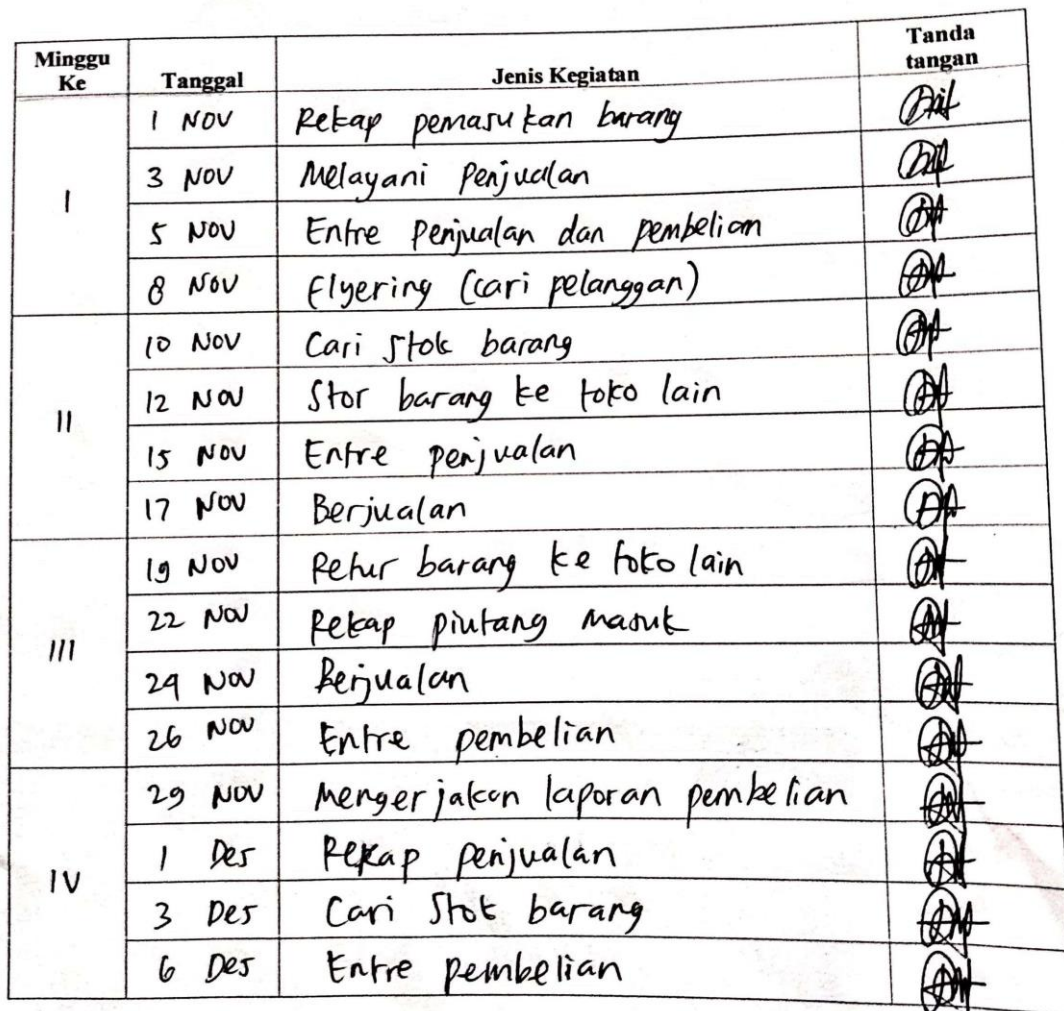 Minggu Ke Tanggal Jenis Kegiatan Tanda tangan
I
1 NOV Rekap pemasukan barang
3 NOV Melayani Penjualan
5 NOV Entre Penjualan dan pembelian
8 NOV Flyering (cari pelanggan)
II
10 NOV Cari Stok barang
12 NOV Stor barang ke toko lain
15 NOV Entre penjualan
17 NOV Berjualan
III
19 NOV Retur barang ke toko lain
22 NOV Rekap piutang masuk
24 NOV Berjualan
26 NOV Entre pembelian
IV
29 NOV Mengerjakan laporan pembelian
1 Des Rekap penjualan
3 Des Cari Stok barang
6 Des Entre pembelian